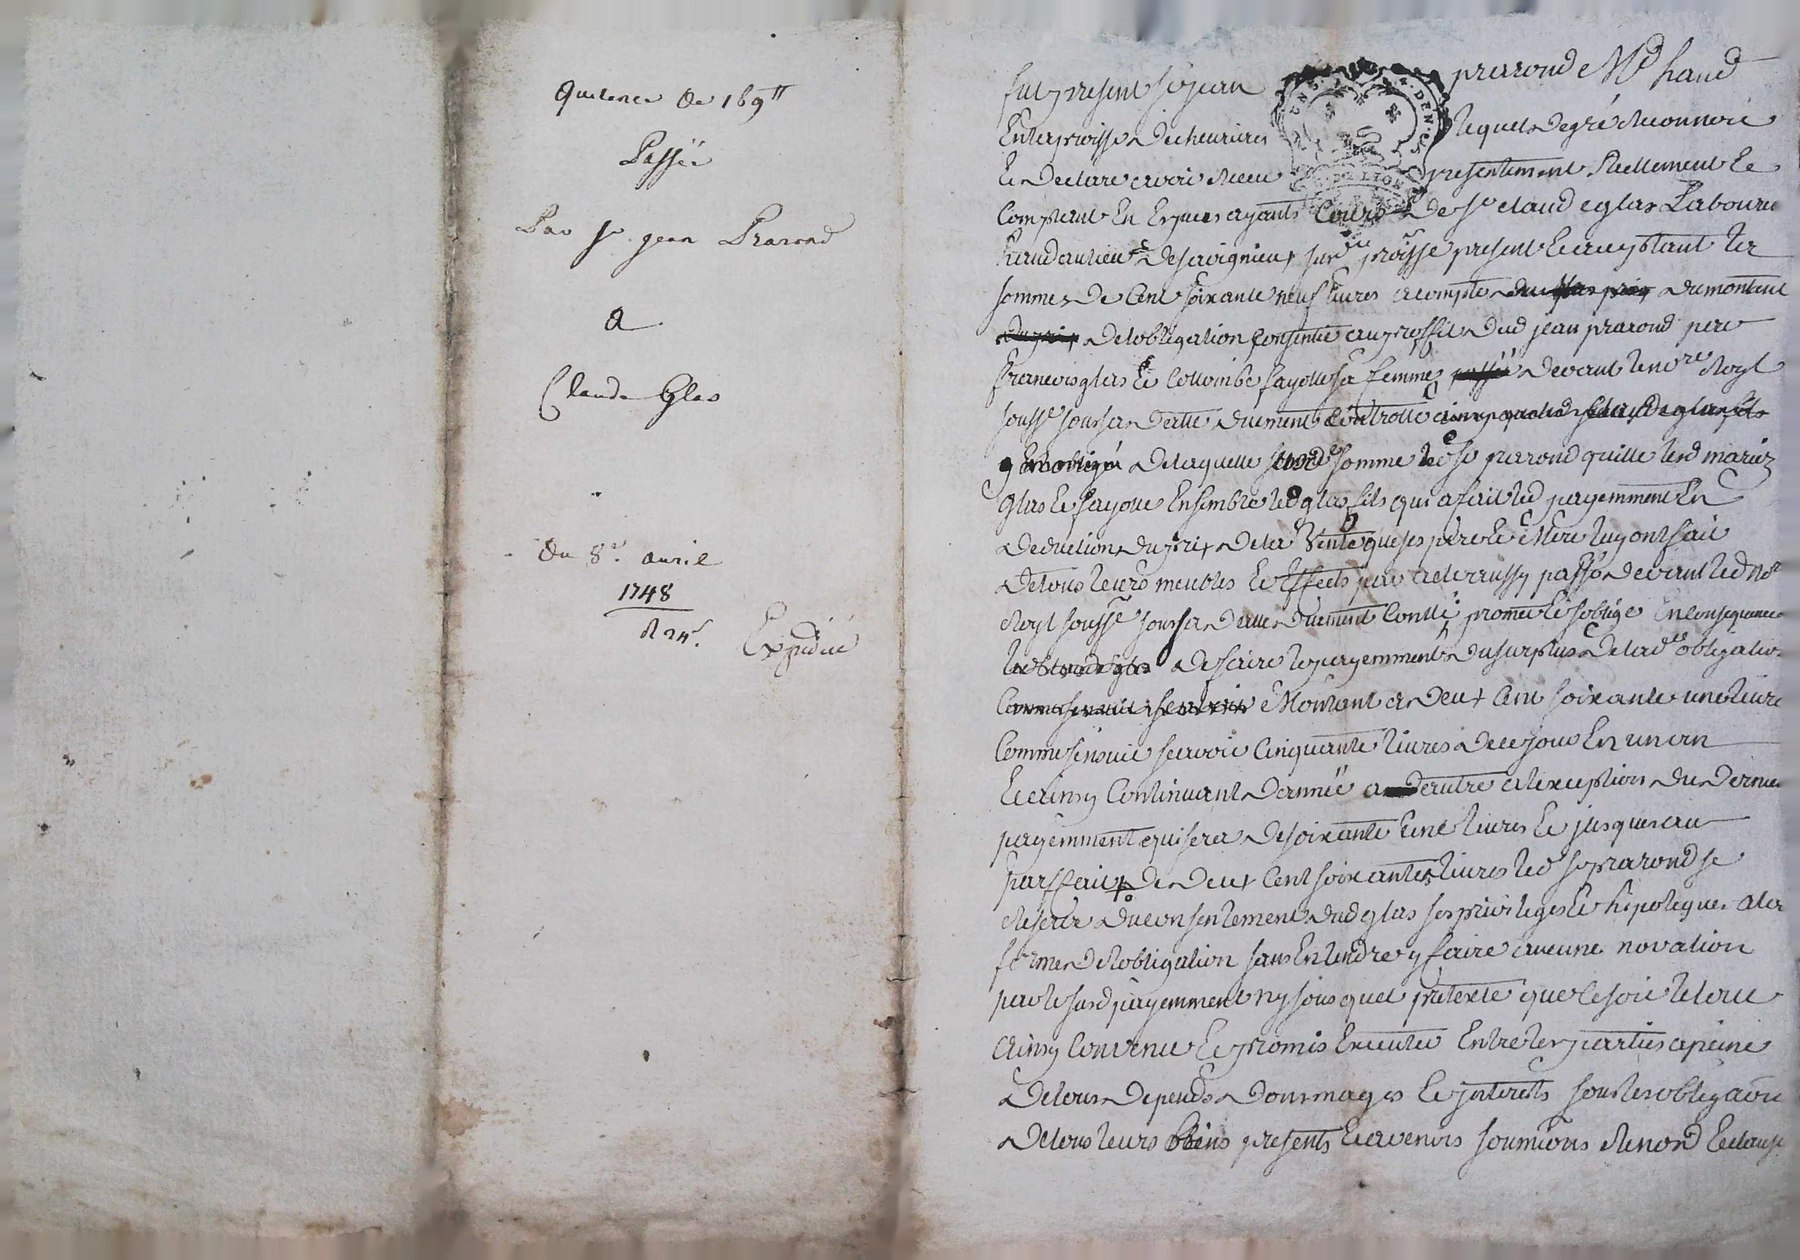 Quittance de 169ᵗᵗ
Passéé
Par sʳ jean Prarond
a
Claude Glas
Du 8ᵉ. avril
1748
R 24ˢ.
Expediéé
fut present sʳ jean prarond Mᵈ hand
En la proisse de cheurieres lequel de gré Reconnoit
Et declare avoir Receu presentement Reellement Et
Comptant En Especes ayants Cours de sʳ claude glas Laboureur
habitant au lieu de savignieu susdᵗᵉ proisse present Et acceptant la
somme de Cent soixante neuf livres a compte du montant
de lobligation Consentie au proffit dud jean prarond par
francois glas Et Colombe fayolle sa femme devant le noʳᵉ Royl
soussᵉ sous sa datte duement Controllé
de laquelle somme led sʳ prarond quitte lesd mariez
glas Et fayolle Ensemble led glas fils qui a fait led payemment En
deduction du prix de la Vente que ses pere Et Mere luy ont fait
de tous leurs meubles Et Effects par acte aussy passé devant led Noʳᵉ
Royl soussᵉ sous sa datte duement Conllé promet Et soblige En Consequence
de faire le payemment du surplus de lad obligation
Montant a deux Cent soixante une livre
Comme sensuit scavoir Cinquante livres de ce jour En un an
Et ainsy Continuant dannéé a dautre a lexception du dernier
payemment qui sera de soixante une livres Et jusques au
parffait de deux Cent soixante livres led sʳ prarond se
Reserve du consentement dud glas ses privileges Et hipoteques a la
forme de lobligation sans Entendre y faire aucune novation
par le susd payemment ny sous quel pretexte que ce soit le tout
ainsy Convenu Et promis Executer Entre les parties a peine
de tous depends dommages Et interests sous les obligaon
de tous leurs biens presents Et avenirs soumions Renond Et clause